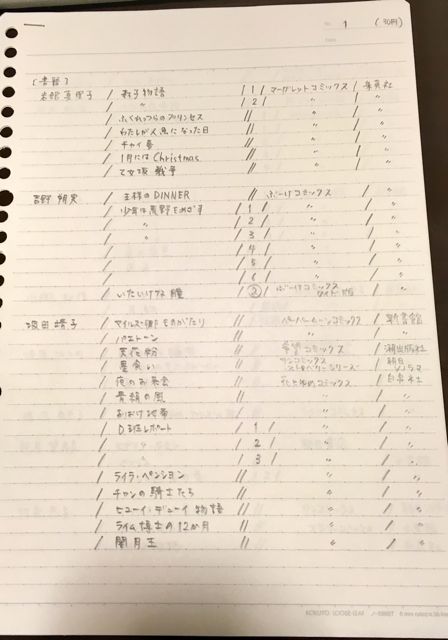 1 (30冊)
[書籍]
岩館真理子 / 森子物語 / 1 / マーガレットコミックス / 集英社
/ 〃 / 2 / 〃 / 〃
/ ふくれっつらのプリンセス // 〃 / 〃
/ わたしが人魚になった日 // 〃 / 〃
/ チャイ夢 // 〃 / 〃
/ 1月にはChristmas // 〃 / 〃
/ 乙女坂戦争 // 〃 / 〃
吉野朔実 / 王様のDINNER // ぶーけコミックス / 〃
/ 少年は荒野をめざす / 1 / 〃 / 〃
/ 〃 / 2 / 〃 / 〃
/ 〃 / 3 / 〃 / 〃
/ / 4 / 〃 / 〃
/ / 5 / 〃 / 〃
/ / 6 / 〃 / 〃
/ いたいけな瞳 / ② / ぶーけコミックスワイド版 / 〃
坂田靖子 / マイルズ卿ものがたり // ペーパームーンコミックス / 新書館
/ パエトーン //
/ 天花粉 // 希望コミックス / 潮出版社
/ 星食い // サンコミックスストロベリーシリーズ / 朝日ソノラマ
/ 夜のお茶会 // 花とゆめコミックス / 白泉社
/ 青絹の風 // 〃 / 〃
/ おばけ地帯 // 〃 / 〃
/ D班レポート / 1 / 〃 / 〃
/ / 2 / 〃 / 〃
/ / 3 / 〃 / 〃
/ ライラ・ペンション // 〃 / 〃
/ チャンの騎士たち // 〃 / 〃
/ ヒューイ・デューイ物語 // 〃 / 〃
/ ライム博士の12か月 // 〃 / 〃
/ 闇月王 // 〃 / 〃
KOKUYO LOOSE-LEAF